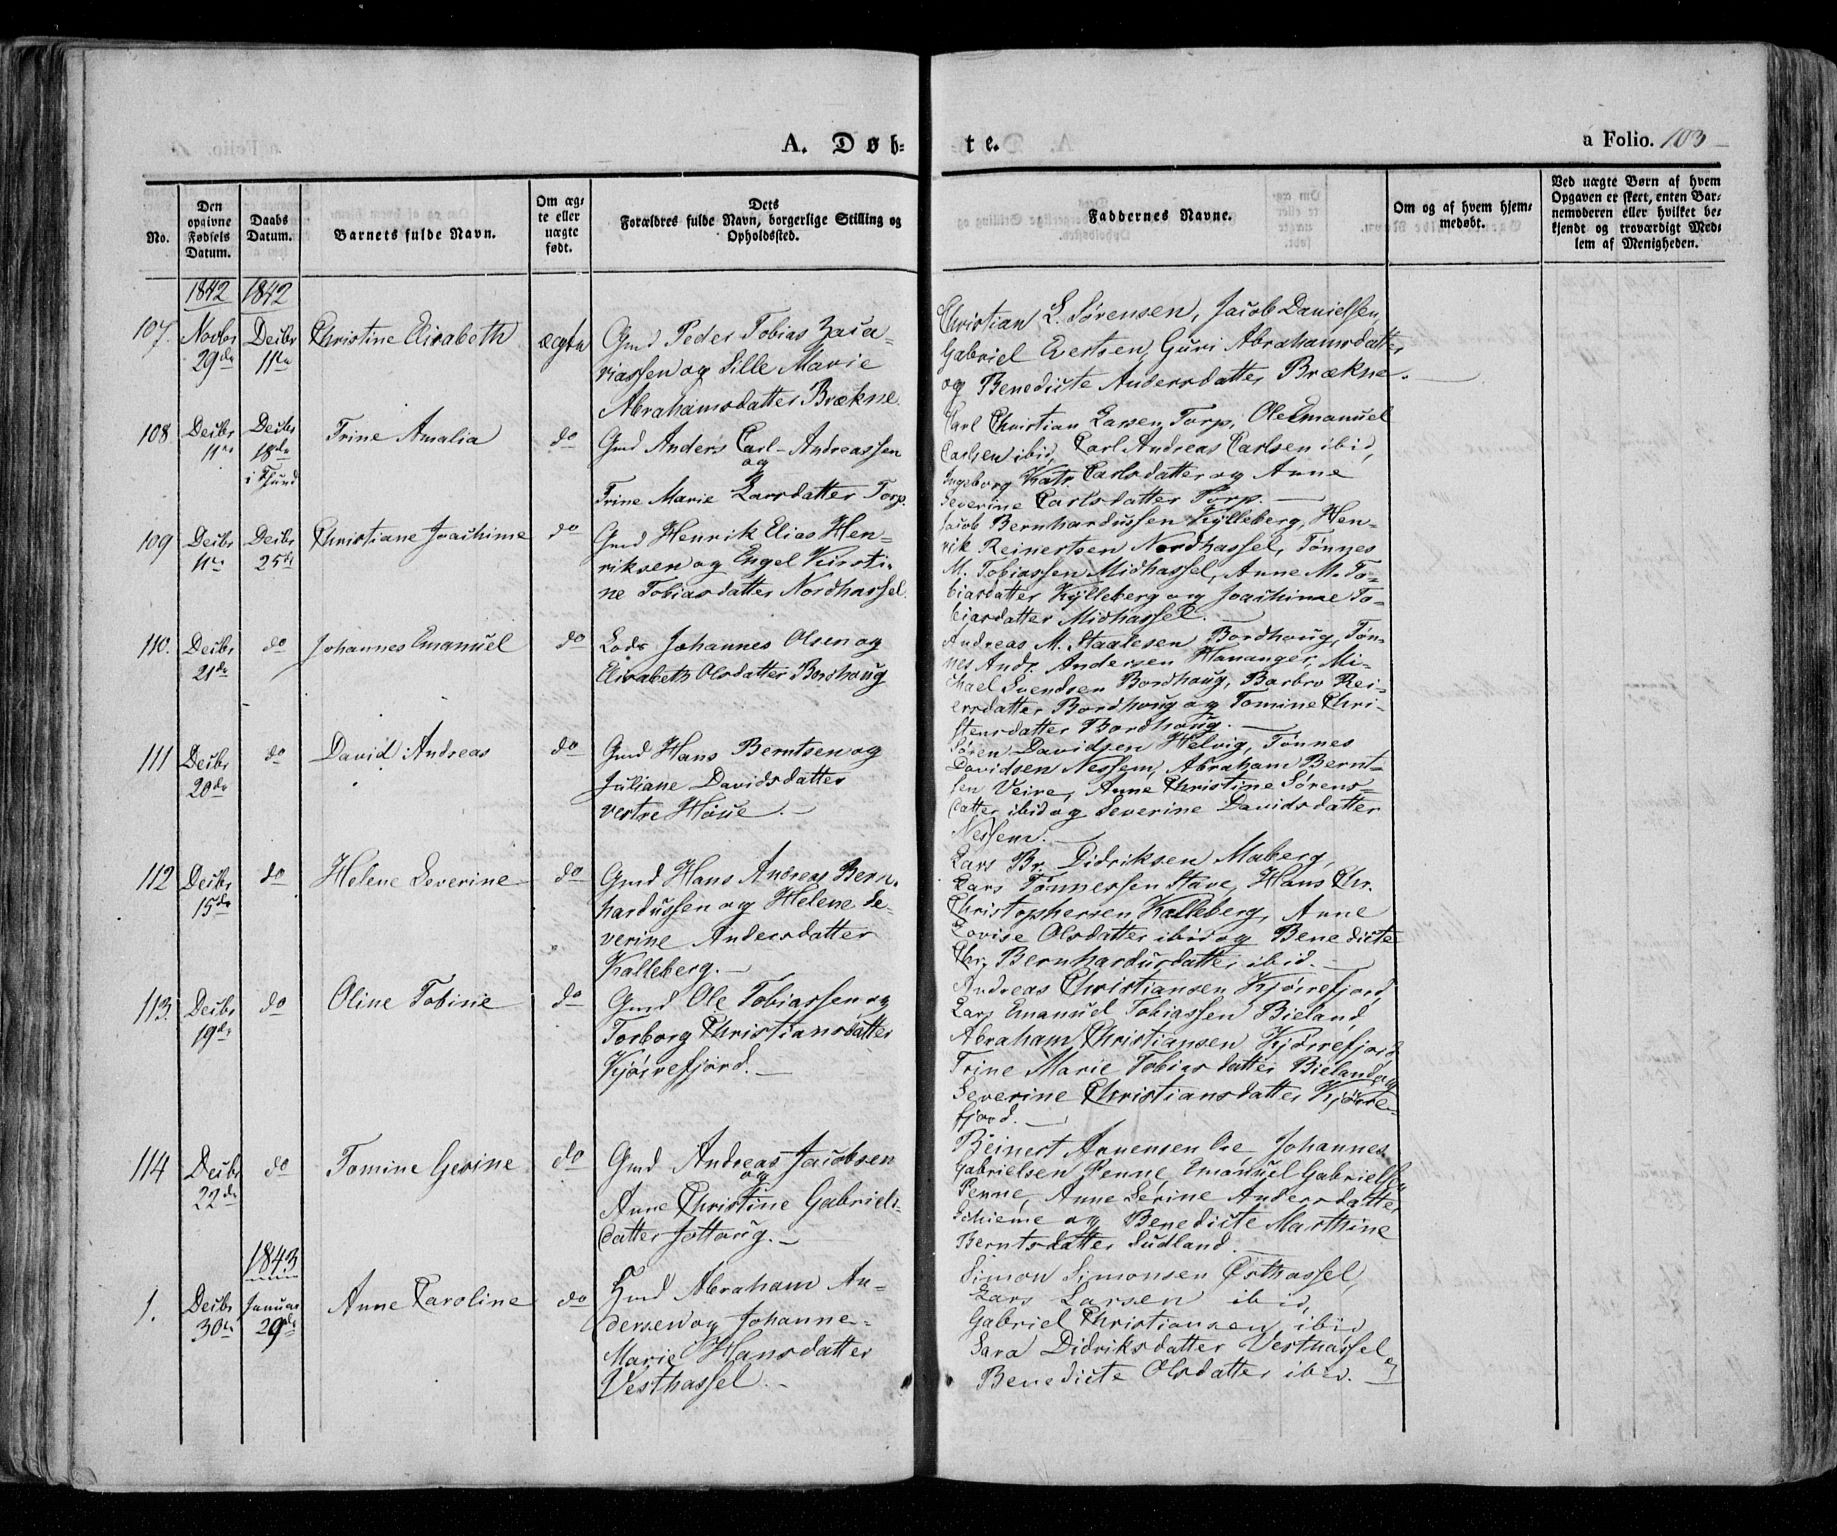 A. Døb-
te.
a Folio. 103
No.
Den
opgivne
Fødsels
Datum.
Daabs
Datum.
Barnets fulde Navn.
Om æg-
te eller
uægte
født.
Dets
Forældres fulde Navn, borgerlige Stilling og
Opholdssted.
Faddernes Navne.
Om og af hvem hjem-
medøbt.
Ved uægte Børn af hvem
Opgaven er skeet, enten Bar-
nemoderen eller hvilket be-
kjendt og troværdigt Med-
lem af Menigheden.
1842 1842
107.
Novbr
29de
Decbr
11te
Christine Elisabeth
ægte
Gmd Peder Tobias Zaca-
riassen og Sille Marie
Abrahamsdatter Brækne.
Christian L. Sørensen, Jacob Danielsen,
Gabriel Evertsen, Guri Abrahamsdatter
og Benedicte Andersdatter Brækne.
108
Decbr
11te
Decbr
18de
i Spind
Trine Amalia
do
Gmd Anders Carl-Andreassen
og
Trine Marie Larsdatter Torp.
Carl Christian Larsen Torp, Ole Emanuel
Carlsen ibid, Carl Andreas Carlsen ibid,
Ingeborg Katr. Carlsdatter og Anne
Severine Carlsdatter Torp.
109
Decbr
11te
Decbr
25de
Christiane Joachime
do
Gmd Henrik Elias Hen-
riksen og Engel Kirsti-
ne Tobiasdatter Nordhassel.
Jacob Bernhardussen Kylleberg, Hen-
rik Reinertsen Nordhassel, Tønnes
M. Tobiassen Midhassel, Anne M. To-
biasdatter Kylleberg og Joachime To-
biasdatter Midhassel.
110.
Decbr
21de
do
Johannes Emanuel
do
Lods Johannes Olsen og
Elisabeth Olsdatter Bordhoug
Andreas M. Staalesen Bordhoug, Tøn-
nes Andr. Andersen Hananger, Mi-
chael Svendsen Bordhoug, Barbro Rei-
ersdatter Bordhoug og Tomine Chri-
stensdatter Bordhoug.
111
Decbr
20de
do
David Andreas
do
Gmd Hans Berntsen og
Juliane Davidsdatter
vestre Houe.
Søren Davidsen Helvig, Tønnes
Davidsen Nessem, Abraham Bernt-
sen Veire, Anne Christine Sørens-
datter ibid og Severine Davidsdatter
Nessem.
112
Decbr
15de
do
Helene Severine
do
Gmd Hans Andreas Bern-
hardussen og Helene Se-
verine Andersdatter
Kalleberg.
Lars Br. Didriksen Maberg,
Lars Tønnessen Stave, Hans Chr.
Christophersen Kalleberg, Anne
Lovise Olsdatter ibid og Benedicte
Chr. Bernhardusdatter ibid.
113.
Decbr
19de
do
Oline Tobine
do
Gmd Ole Tobiassen og
Torborg Christiansdatter
Kjørrefjord.
Andreas Christiansen Kjørrefjord
Lars Emanuel Tobiassen Bieland
Abraham Christiansen Kjørrefjord
Trine Marie Tobiasdatter Bieland og
Severine Christiansdatter Kjørre-
fjord.
114
Decbr
22de
do
Tomine Gesine
do
Gmd Andreas Jacobsen
og
Anne Christine Gabriels-
datter Jottoug.
Reinert Anensen Ore, Johannes
Gabrielsen Penne, Emanuel Gabrielsen
Penne, Anne Serine Andersdatter
Skieme og Benedicte Marthine
Berntsdatter Sudland.
1843
1.
Decbr
30te
Januar
29de
Anne Caroline
do
Gmd Abraham An-
dersen og Johanne-
Marie Hansdatter
Vesthassel.
Simon Simonsen Østhassel,
Lars Larsen ibid,
Gabriel Christiansen ibid,
Sara Didriksdatter Vesthassel og
Benedicte Olsdatter ibid.